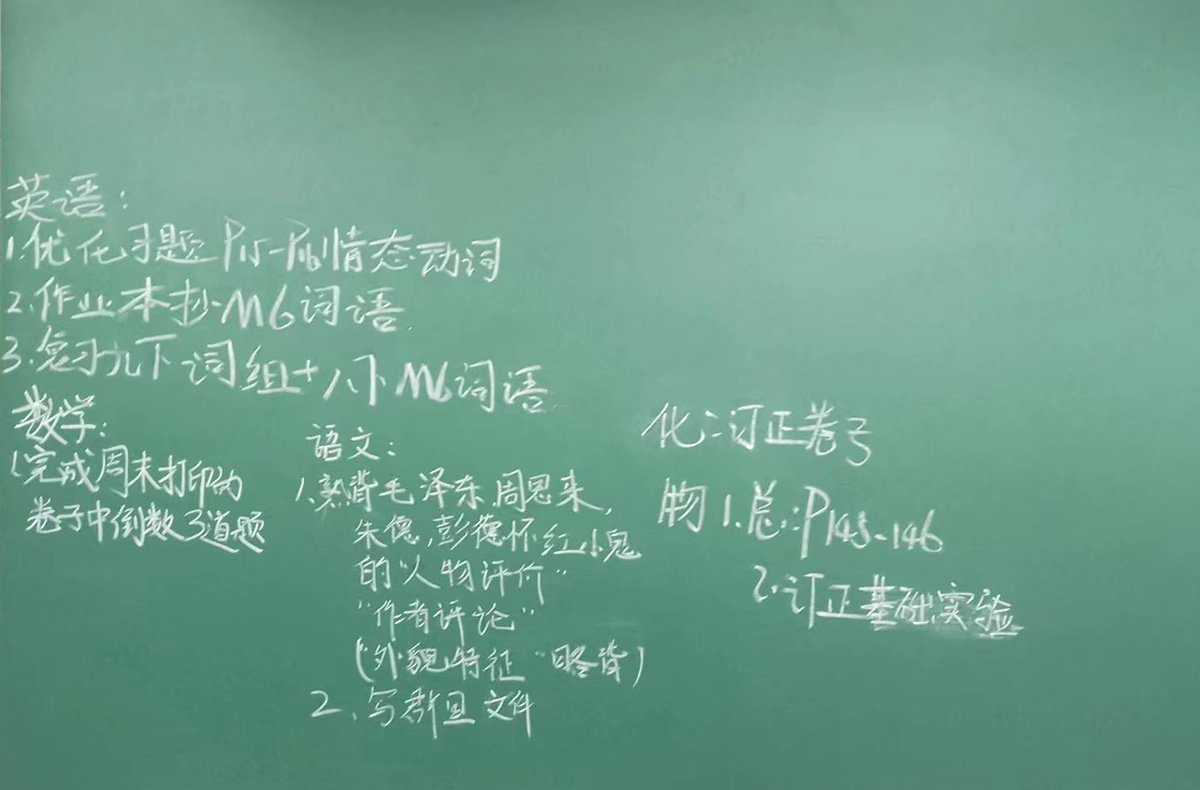 英语：
1.优化习题P15-P16情态动词
2.作业本抄M6词语
3.复习九下词组+八下M6词语
数学：
1.完成周末打印的
卷子中倒数3道题
语文：
1.熟背毛泽东,周恩来,
朱德,彭德怀,红小鬼
的"人物评价"
"作者评论"
("外貌特征"略背)
2.写群里文件
化：订正卷子
物 1.总：P145-146
2.订正基础实验